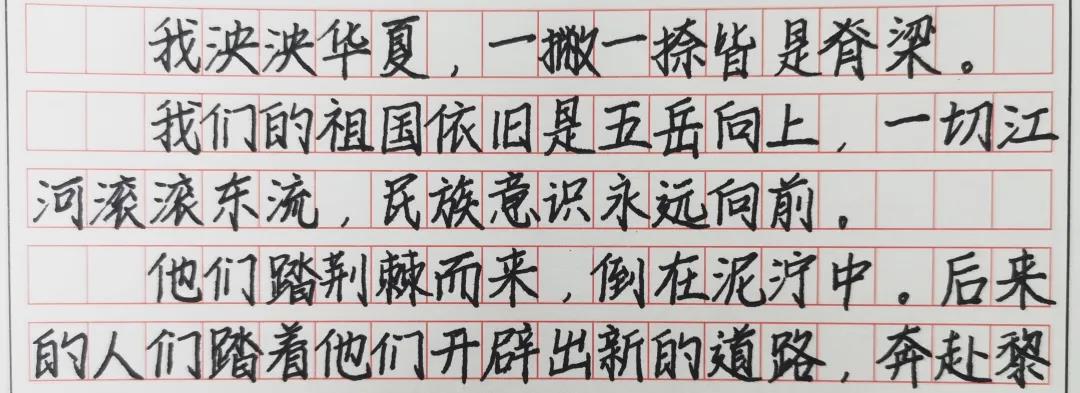 我泱泱华夏,一撇一捺皆是脊梁。
我们的祖国依旧是五岳向上,一切江
河滚滚东流,民族意识永远向前。
他们踏荆棘而来,倒在泥泞中。后来
的人们踏着他们开辟出新的道路,奔赴黎